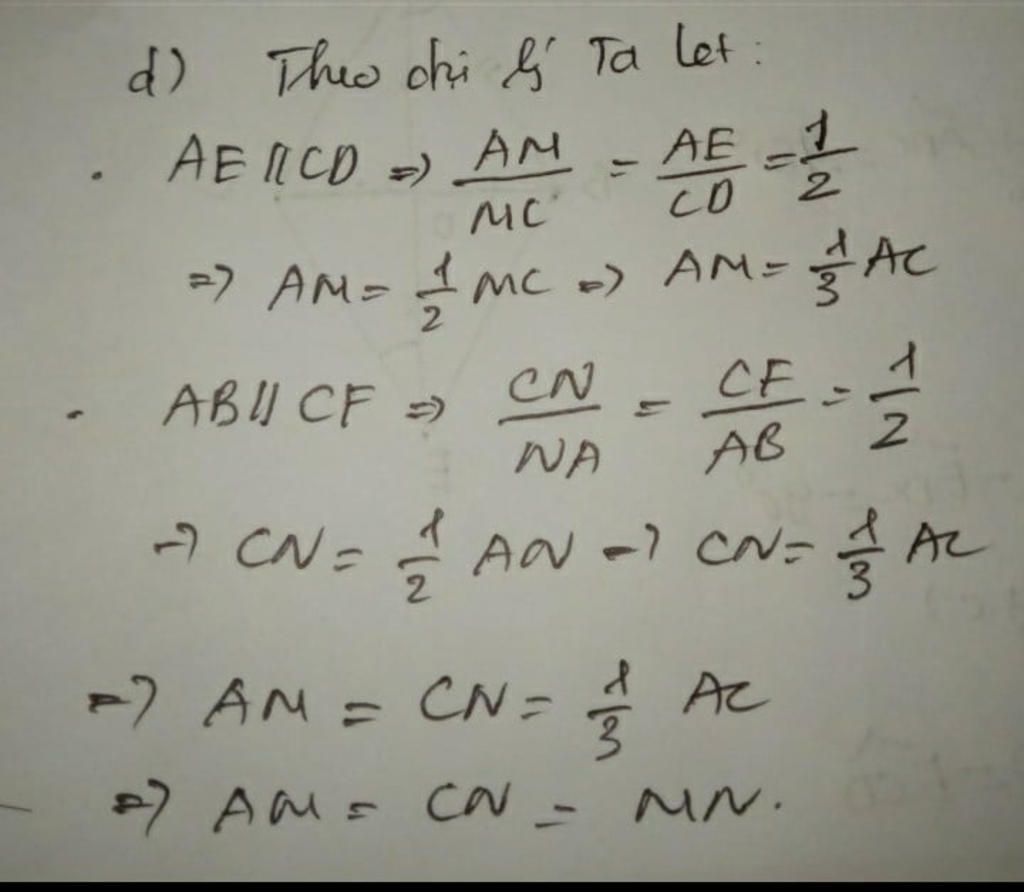 d) Theo định lý Ta let:
. AE // CD => AM/MC = AE/CD = 1/2
=> AM = 1/2 MC => AM = 1/3 AC
. AB // CF => CN/NA = CF/AB = 1/2
=> CN = 1/2 AN => CN = 1/3 AC
=> AM = CN = 1/3 AC
=> AM = CN = MN.